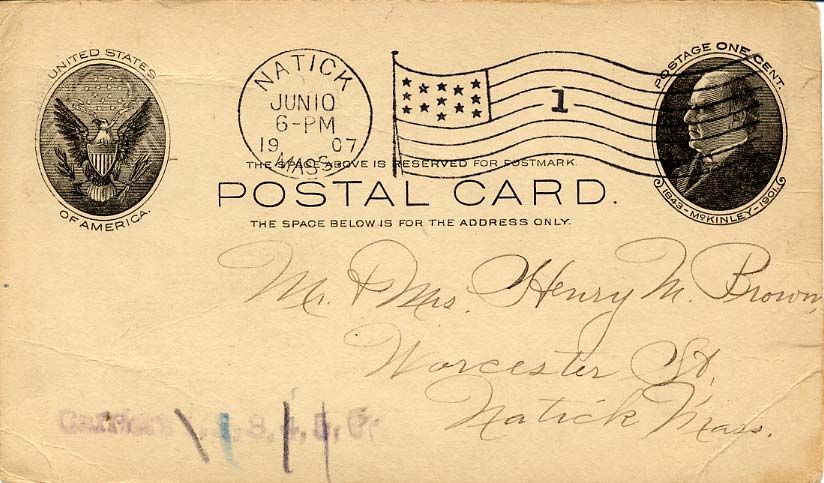 UNITED STATES
OF AMERICA.
NATICK
JUN 10
6-PM
19 07
MASS.
1
POSTAGE ONE CENT.
1843-McKINLEY-1901.
THE SPACE ABOVE IS RESERVED FOR POSTMARK.
POSTAL CARD.
THE SPACE BELOW IS FOR THE ADDRESS ONLY.
Mr. & Mrs. Henry M. Brown,
Worcester St.
Natick Mass.